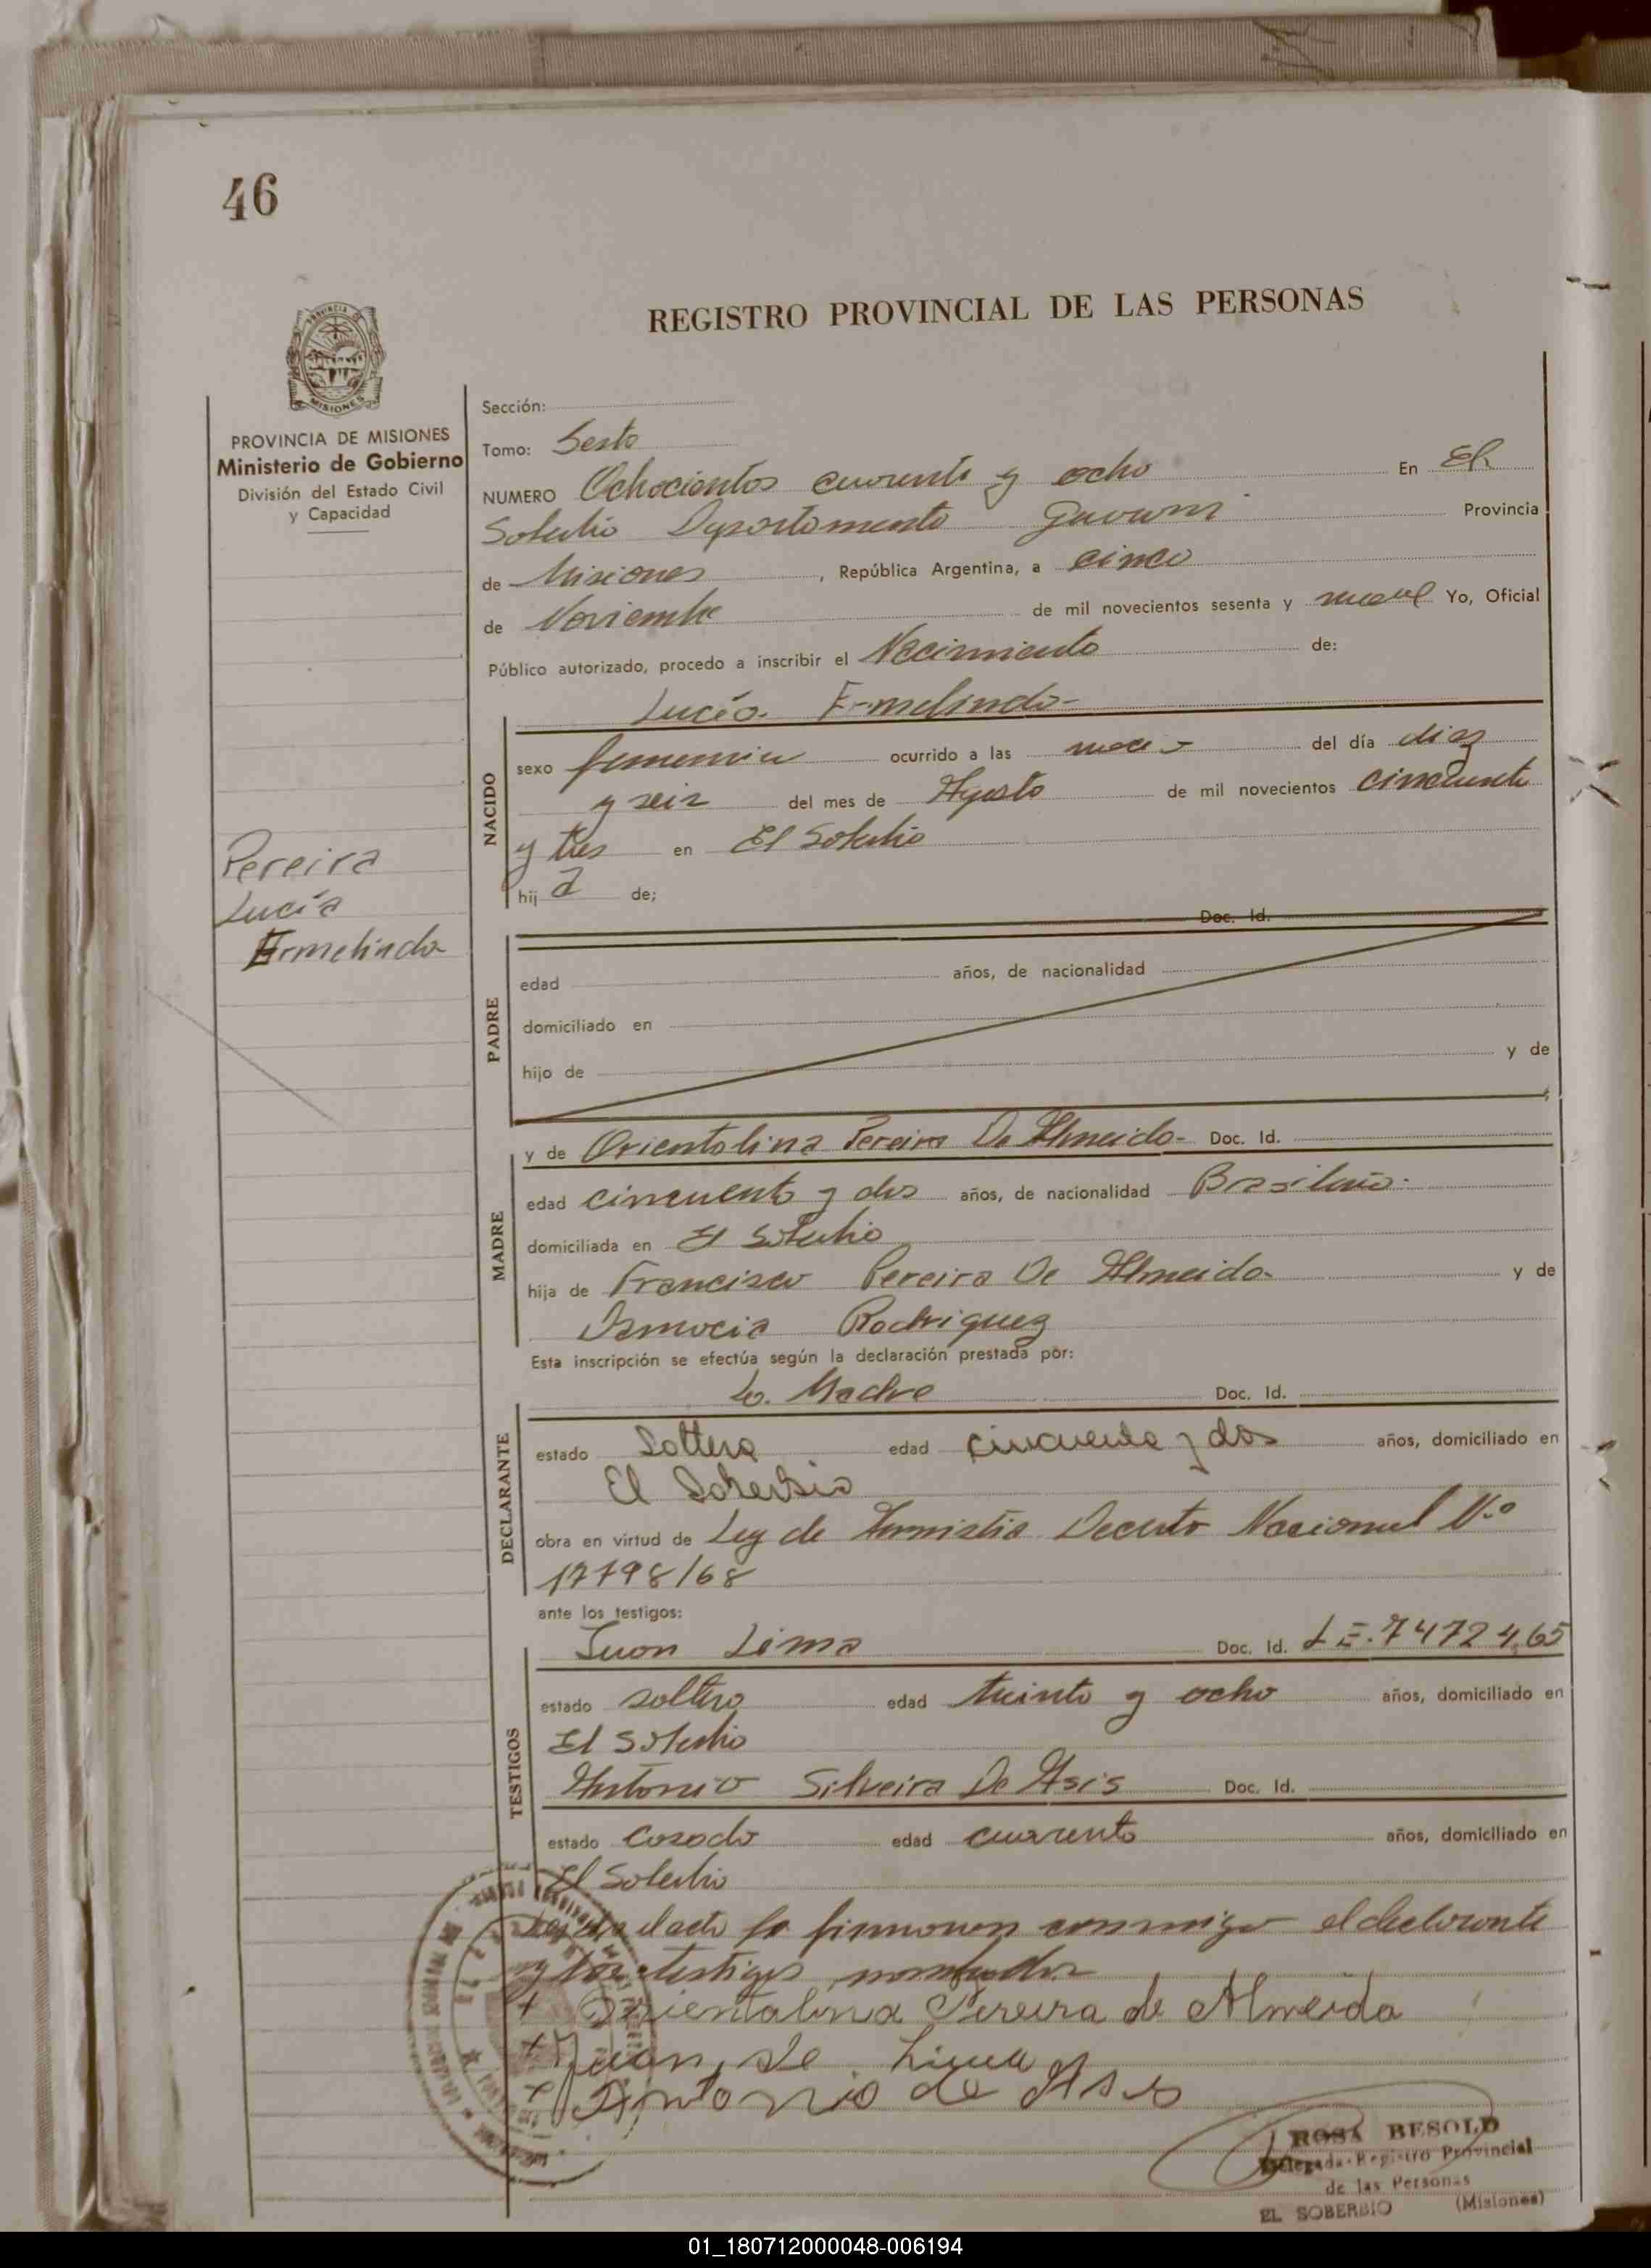 46
REGISTRO PROVINCIAL DE LAS PERSONAS
PROVINCIA DE MISIONES
MISIONES
PROVINCIA DE MISIONES
Ministerio de Gobierno
División del Estado Civil
y Capacidad
Pereira
Lucía
Ermelinda
Sección:
Tomo: Sexto
NUMERO Ochocientos cuarenta y ocho En El
Soberbio Departamento Guarani Provincia
de Misiones, República Argentina, a cinco
de Noviembre de mil novecientos sesenta y nueve Yo, Oficial
Público autorizado, procedo a inscribir el Nacimiento de:
Lucía Ermelinda-
NACIDO
sexo femenino ocurrido a las del día diez
y seis del mes de Agosto de mil novecientos cincuenta
y tres en El Soberbio
hija de;
PADRE
Doc. Id.
edad años, de nacionalidad
domiciliado en
hijo de y de
MADRE
y de Orientalina Pereira De Almeida- Doc. Id.
edad cincuenta y dos años, de nacionalidad Brasileña.
domiciliada en El Soberbio
hija de Francisco Pereira De Almeida- y de
Rodriguez
Esta inscripción se efectúa según la declaración prestada por:
DECLARANTE
La Madre Doc. Id.
estado Soltera edad cincuenta y dos años, domiciliado en
El Soberbio
obra en virtud de Ley de Amnistia Decreto Nacional N.º
17798/68
ante los testigos:
TESTIGOS
Juan Lima Doc. Id. L E. 7472465
estado soltero edad treinta y ocho años, domiciliado en
El Soberbio
Antonio Silveira De Asis Doc. Id.
estado casado edad cuarenta años, domiciliado en
El Soberbio
Leida el acta la firmaron conmigo el declarante
y los testigos nombrados
+ Orientalina Pereira de Almeida
+ Juan de Lima
+ Antonio de Asis
ROSA BESOLD
Delegada-Registro Provincial
de las Personas
EL SOBERBIO (Misiones)
01_180712000048-006194